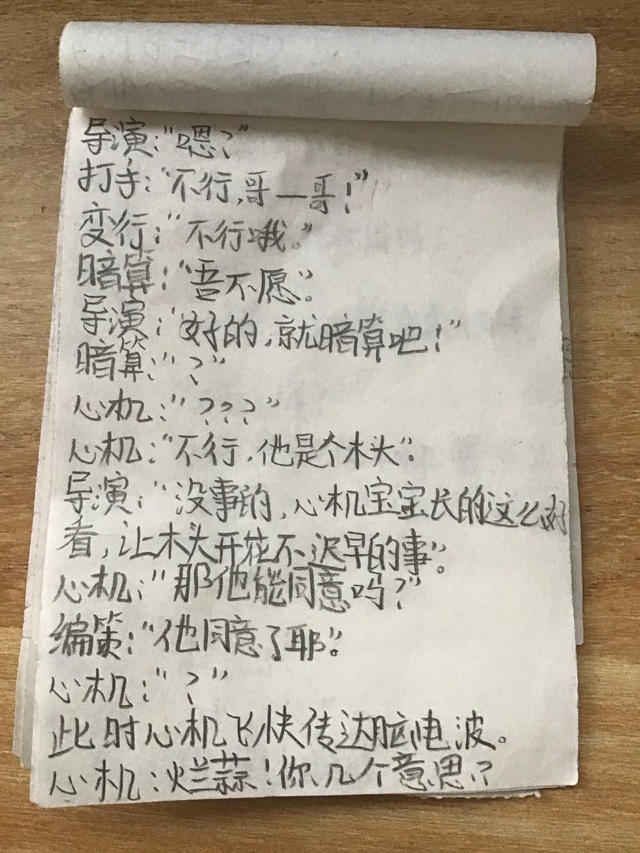 导演:“嗯?”
打手:“不行,哥—哥!”
变行:“不行哦。”
暗算:“吾不愿”。
导演:“好的,就暗算吧!”
暗算:“?”
心机:“???”
心机:“不行,他是个木头”。
导演:“没事的,心机宝宝长的这么好
看,让木头开花不迟早的事”。
心机:“那他能同意吗?”
编策:“他同意了耶”。
心机:“?”
此时心机飞快传达脑电波。
心机:烂蒜!你几个意思?